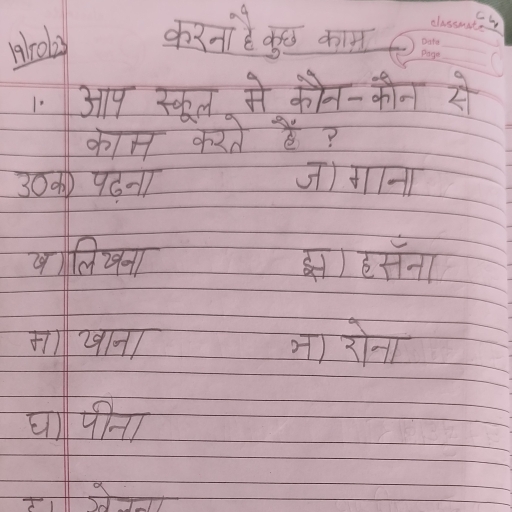 करना है कुछ काम
classmate
Date
Page
19/10/23
1. आप स्कूल मे कौन-कौन से
काम करते हैं ?
उ०क) पढ़ना ज) गाना
ख) लिखना झ) हसँना
ग) खाना ञ) रोना
घ) पीना
ड़) खेलना